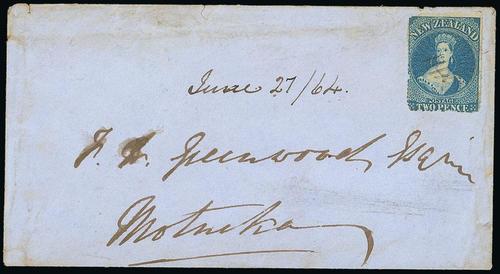 NEW ZEALAND
POSTAGE
TWO PENCE
June 27/64.
F. D. Greenwood, Esqre
Motueka